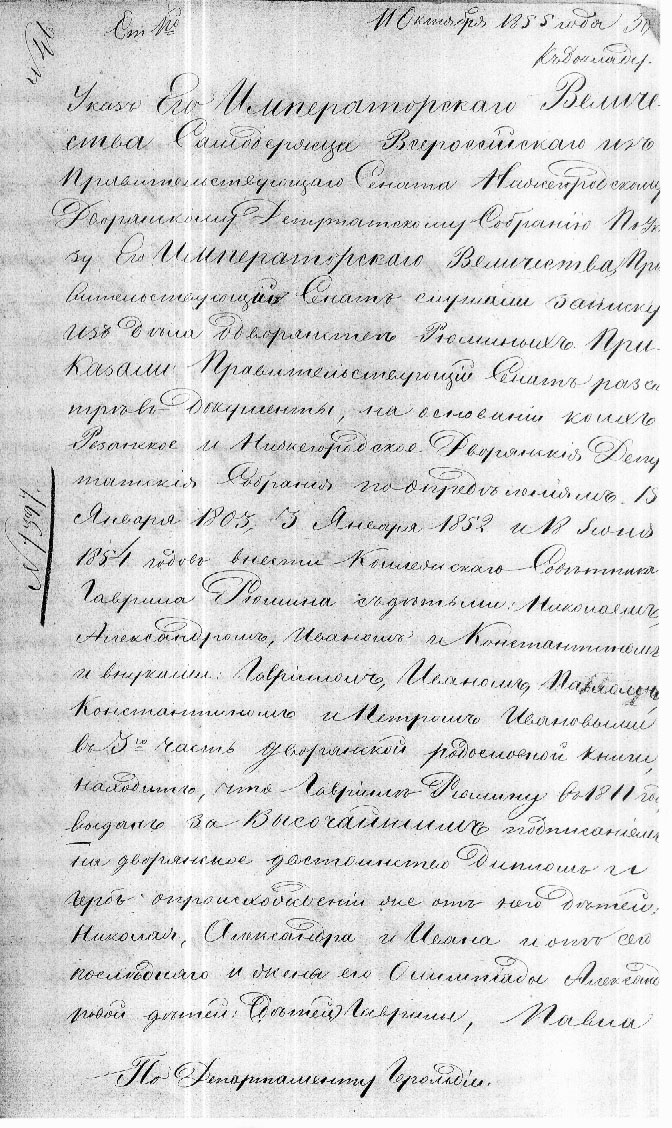 11 Октября 1855 года
Къ докладу.
Указъ Его Императорскаго Величе-
ства Самодержца Всероссійскаго изъ
Правительствующаго Сената Нижегородскому
Дворянскому Депутатскому Собранію. По Ука-
зу Его Императорскаго Величества, Пра
вительствующій Сенатъ слушали записку
изъ дѣла о дворянствѣ Рюминыхъ. При-
казали: Правительствующій Сенатъ разсмо
трѣвъ документы, на основаніи коихъ
Рязанское и Нижегородское Дворянскія Депу
татскія Собранія по опредѣленіямъ 13
Января 1803, 3 Января 1852 и 18 Іюня
1854 годовъ внести Коллежскаго Совѣтника
Гаврила Рюмина съ дѣтьми: Николаемъ,
Александромъ, Иваномъ и Константиномъ
и внуками: Гавріиломъ, Иваномъ, Павломъ,
Константиномъ и Петромъ Ивановыми
въ 3ю часть дворянской родословной книги,
находитъ, что Гавріилъ Рюмину въ 1811 го
выданъ за Высочайшимъ подписаніемъ
на дворянское достоинство дипломъ и
гербъ о происхожденіи же отъ него дѣтей:
Николая, Александра и Ивана и отъ сего
послѣдняго и жены его Олимпіады Александ
ровой дѣтей: Гаврила, Павла
По Департаменту Герольдіи.
№ 1397